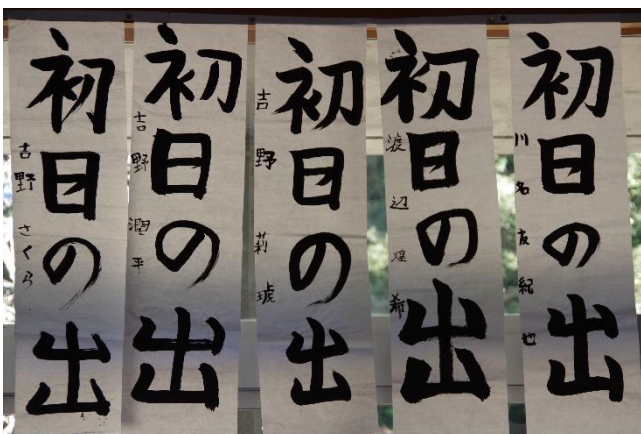 初日の出
川名友紀也
初日の出
渡辺煌希
初日の出
吉野莉琥
初日の出
吉野潤平
初日の出
吉野さくら